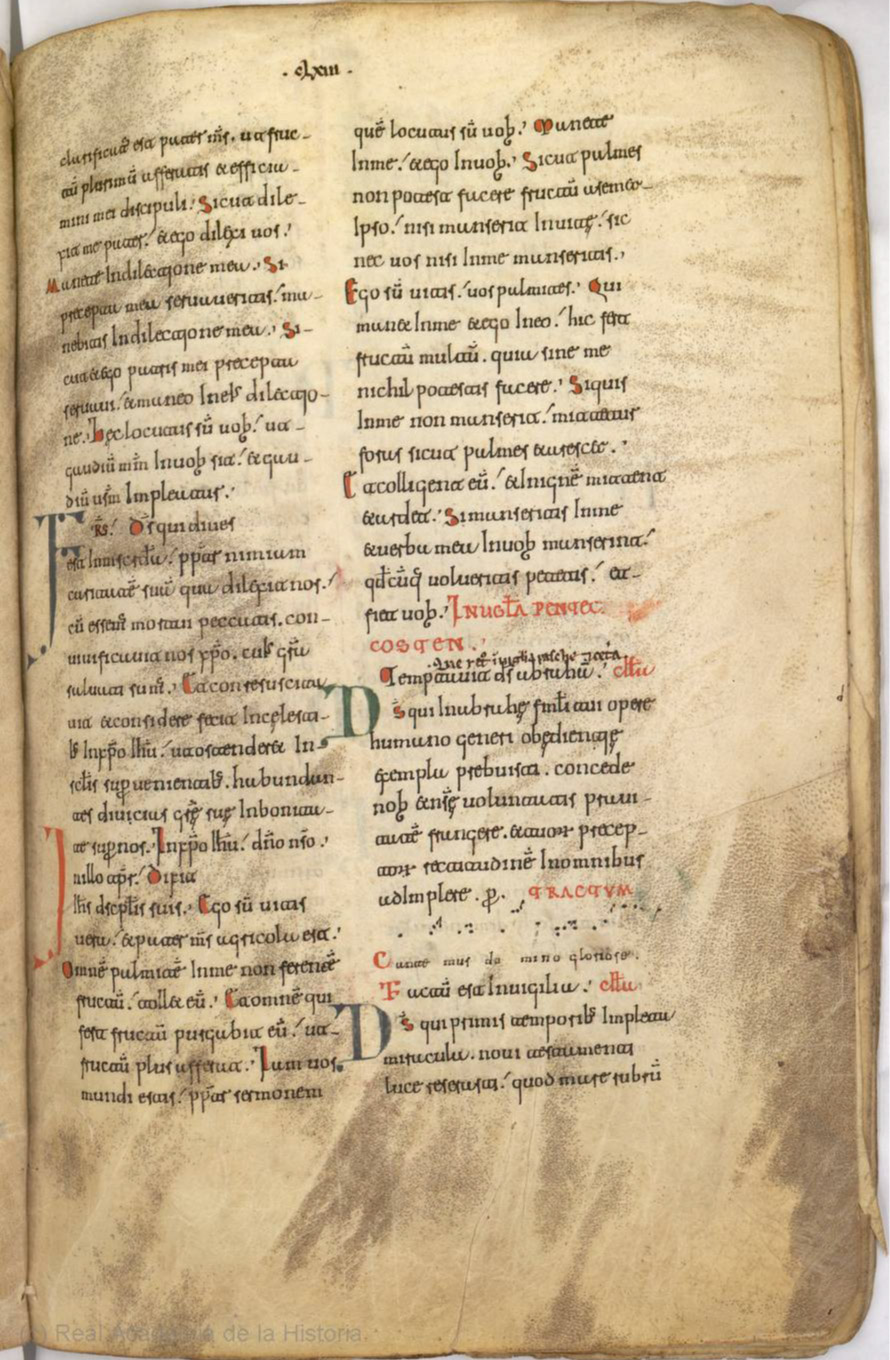 . clxiii .
clarificat̄ est pater m̄s. ut fruc-
tū plurimū afferatis & effici a-
mini mei discipuli. Sicut dile-
xit me pater. & ego dilexi uos.
Manete In dilectione mea. Si
precepta mea seruaueritis. ma-
nebitis In dilectione mea. Si-
cut & ego patris mei precepta
seruaui. & maneo In eīs dilectio-
ne. Hec locutus sū uob. ut
gaudiū m̄m In uob sit. & gau-
diū ūsm Impleatur.
F r̄s. D̄s qui diues
est In misc̄dia. ppter nimium
caritatē suā qua dilexit nos.
cū essem̄ mortui peccatis. con-
uiuificauit nos xp̄o. cuīs gr̄a
saluati sum̄. Et conresuscita
uit & considere fecit In celesti-
b̄ In xp̄o Ih̄u. ut ostenderet In
sc̄lis superuenientib̄. habundan-
tes diuicias gr̄e sue In bonita-
te super nos. In xp̄o Ih̄u. dn̄o nr̄o.
In illo tp̄r. Dixit
Ih̄s dscpl̄is suis. Ego sū uitis
uera. & pater m̄s agricola est.
Omnē palmitē In me non ferentē
fructū. tollet eū. Et omnē qui
fert fructū purgabit eū. ut
fructū plus afferat. Iam uos
mundi estis. ppter sermonem
quē locutus sū uob. Manete
In me. & ego In uob. Sicut palmes
non potest facere fructū a semet-
Ipso. nisi manserit In uite. sic
nec uos nisi In me manseritis.
Ego sū uitis. uos palmites. Qui
manet In me & ego In eo. hic fert
fructū multū. quia sine me
nichil potestis facere. Si quis
In me non manserit. mittetur
foras sicut palmes & arescet.
Et colligent eū. & In ignē mittent
& ardet. Si manseritis In me
& uerba mea In uob manserint.
qđcūq uolueritis petetis. et
fiet uob. IN UGL̄A PENTEC
COSTEN.
Temptauit ds abraham. Cll̄a
D s̄ qui In abrahe fml̄i tui opere
humano generi obedientie
exempla prebuisti. concede
nob & nr̄e uoluntatis praui-
tatē frangere. & tuor precep-
tor rectitudinē In omnibus
adImplere. p. TRACTUM
Cantemus domino gloriose.
Factū est In uigilia. Cll̄a
D s̄ qui primis temporib̄ Impleta
miracula. noui testamenti
luce reserasti. quod mare rubrū